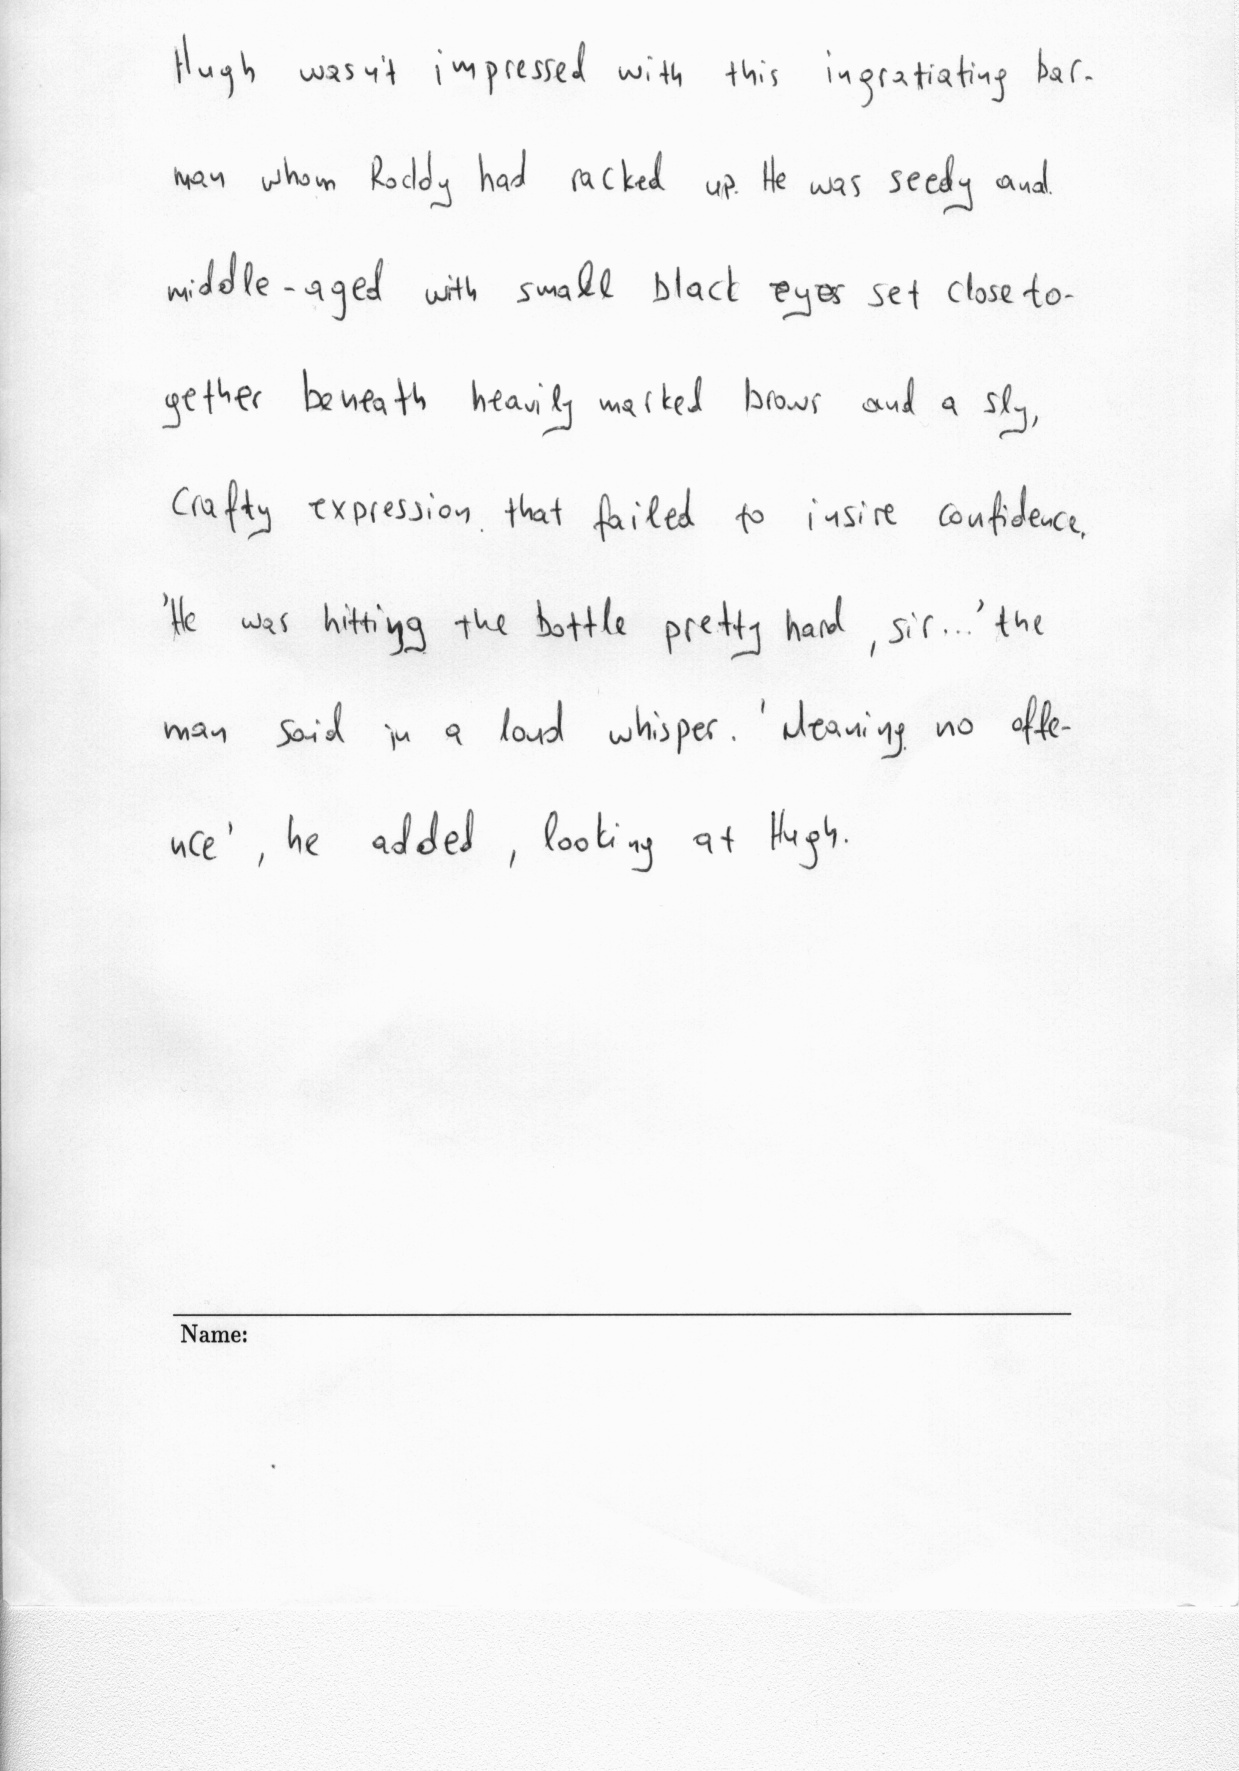 Hugh wasn't impressed with this ingratiating bar-
man whom Roddy had racked up. He was seedy and
middle-aged with small black eyes set close to-
gether beneath heavily marked brows and a sly,
crafty expression that failed to insire confidence.
'He was hitting the bottle pretty hard, sir...' the
man said in a loud whisper. 'Meaning no offe-
nce', he added, looking at Hugh.
Name: